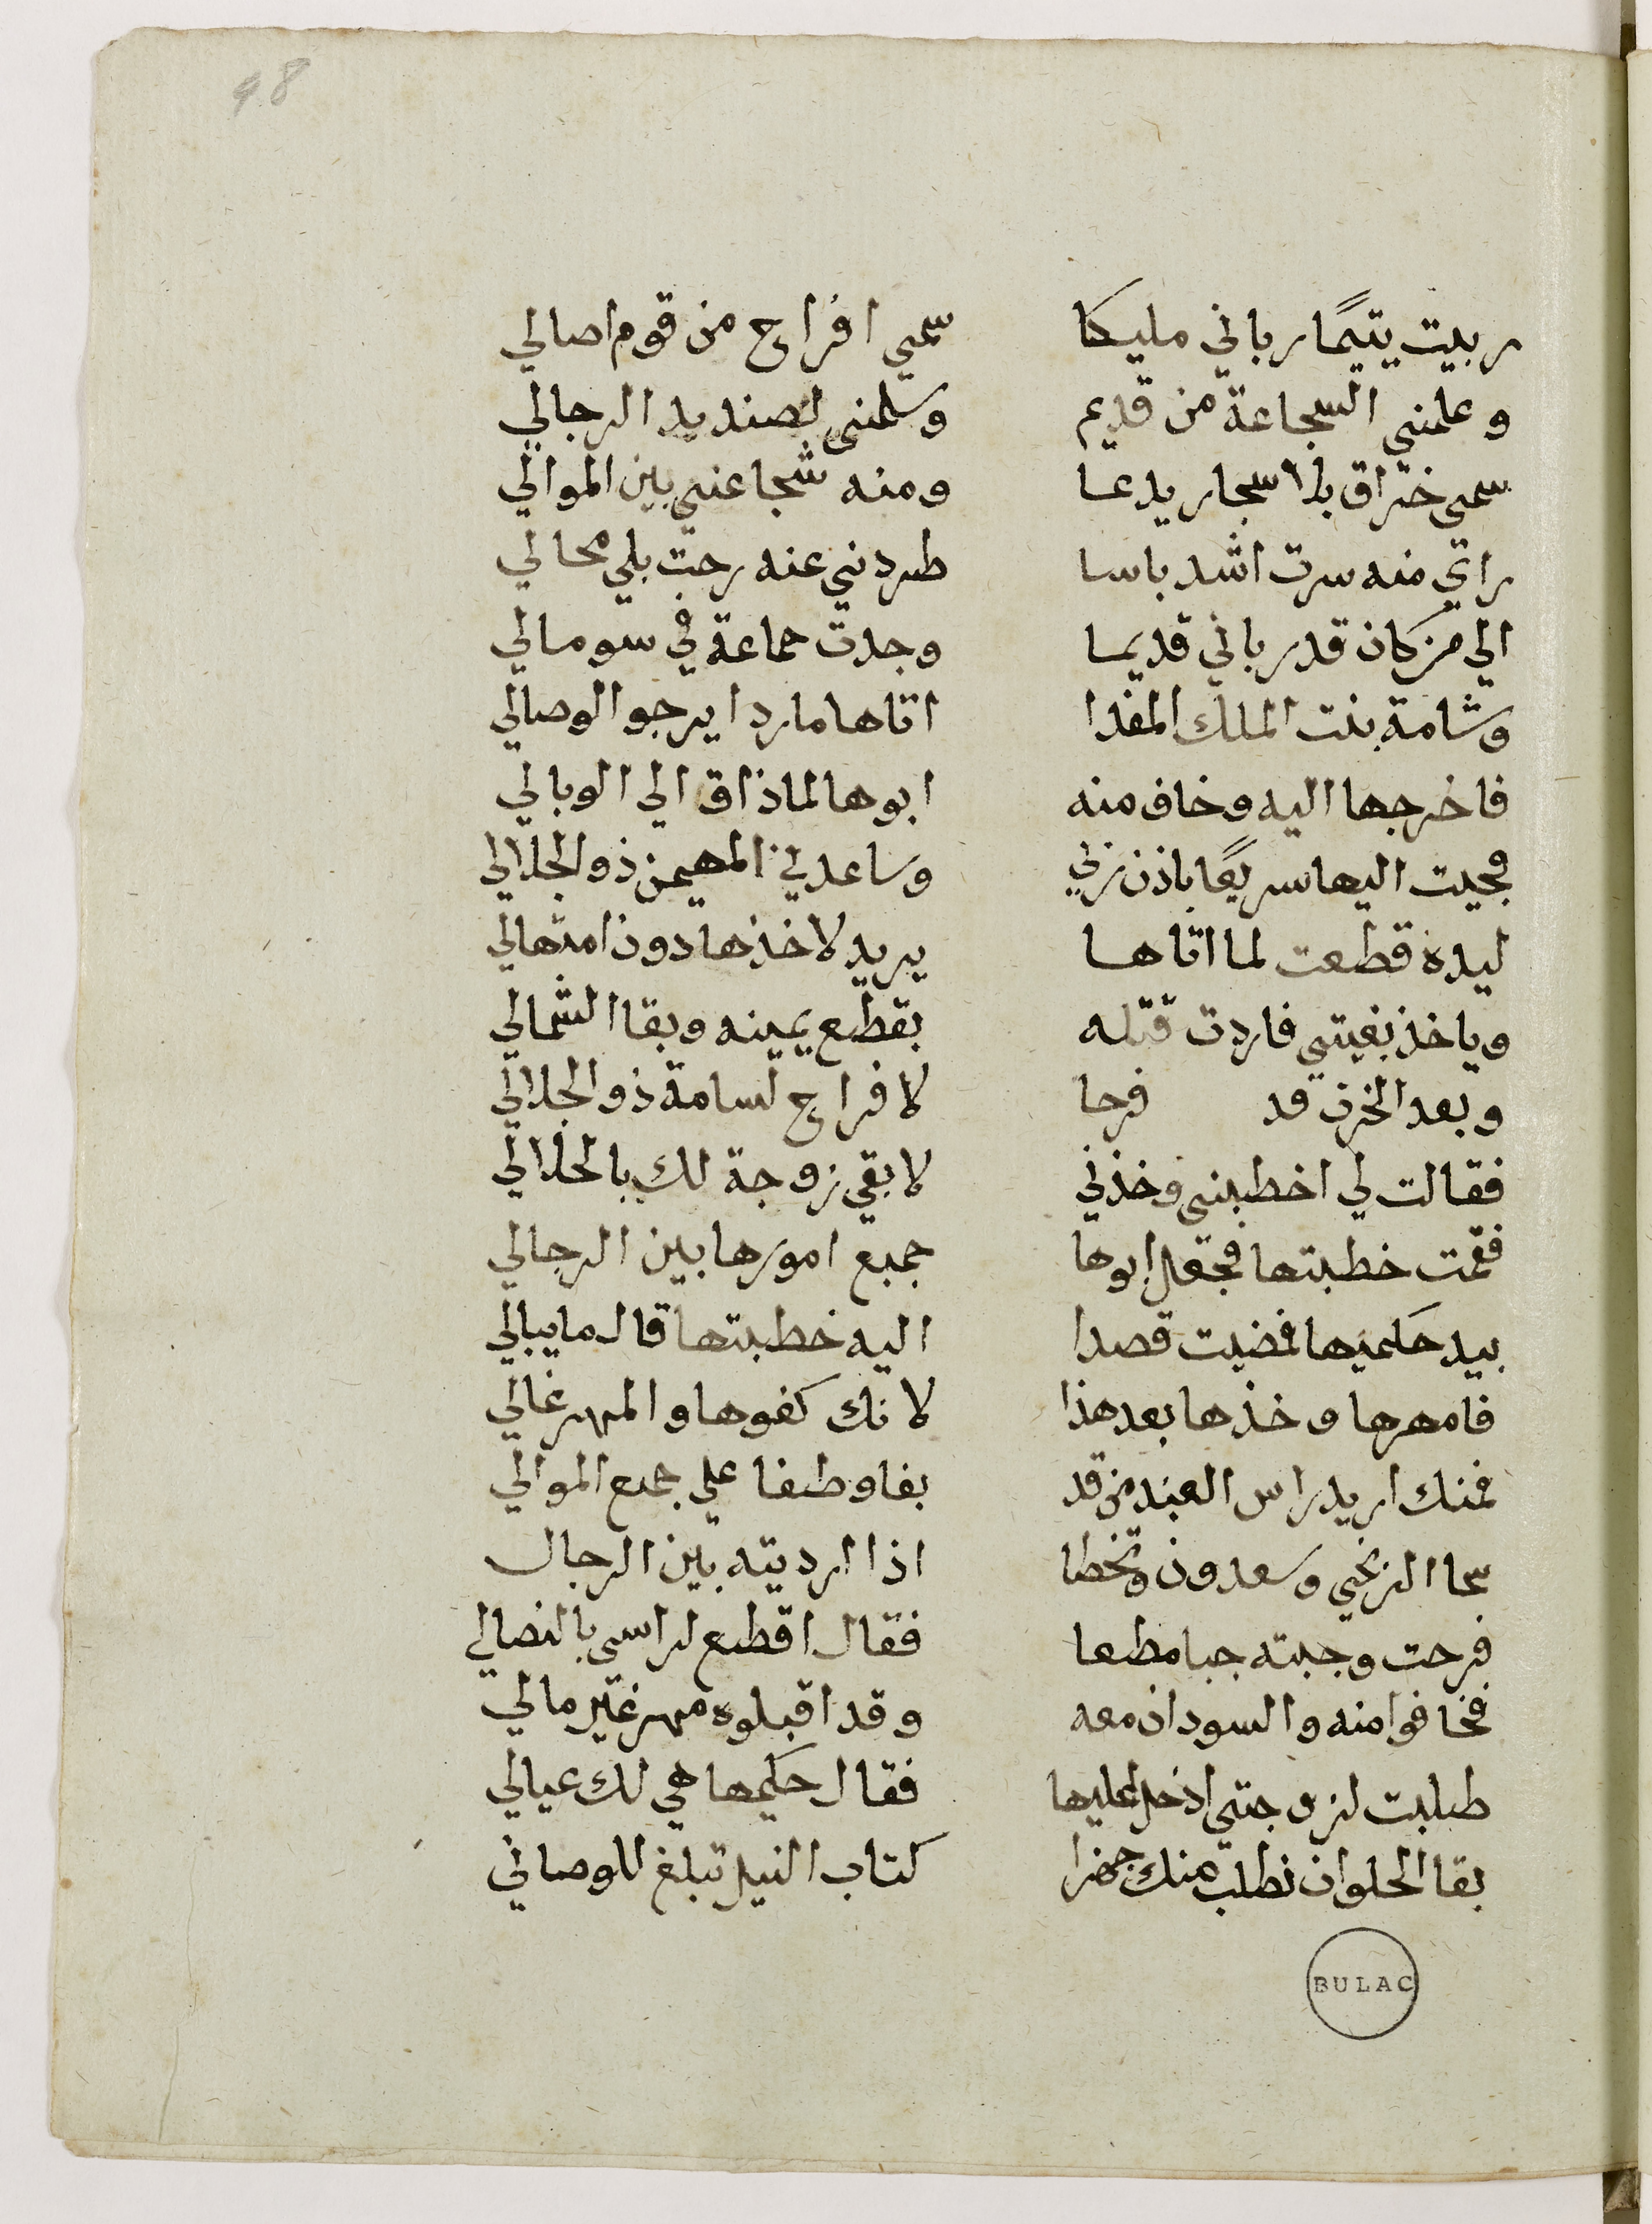 98
ربيت يتيمًا رباني مليكا سمي افراح من قوم اصالي
وعلمني السجاعة من قديم وسلمني لصنديد الرجالي
سمي خراق بلا سجار يدعا ومنه شجاعني بين الموالي
راي منه سرت اشد باسا طردني عنه رحت بلي محالي
الي من كان قد رباني قديما وجدت حماعة في سومالي
وشامة بنت الملك المفدا اتاها ماردا يرجو الوصالي
فاخرجها اليه وخاف منه ابوها لما ذاق الي الوبالي
فجيت اليها سريعًا باذن ربي وساعدني المهيمن ذو الجلالي
ليده قطعت لما اتاها يريد لاخذها دون امتهالي
وياخذ بغيتي فاردت قتله بقطع يمينه وبقا الشمالي
وبعد الحزن قد فرحا لافراح لسامة ذو الجلالي
فقالت لي اخطبني وخذني لابقي زوجة لك بالحلالي
فقمت خطبتها فجعل ابوها جميع امورها بين الرجالي
بيد حكميها فمضيت قصدا اليه خطبتها قال مايبالي
فامهرها وخذها بعد هذا لانك كفوها والمهر غالي
فمنك اريد راس العبد من قد بفا وطغا علي جمع الموالي
سحا الزنجي وسعدون وتخطا اذا ارديته بين الرجال
فرحت وجبته جبا مطعا فقال اقطع لراسي بالنصالي
فخافوا منه والسودان معه وقد اقبلوه مهر غير مالي
طلبت لزوجتي ادخل عليها فقال حكيمها هي لك عيالي
بقا الحلوان نطلب منك جهرا كتاب النيل تبلغ للوصالي
BULAC